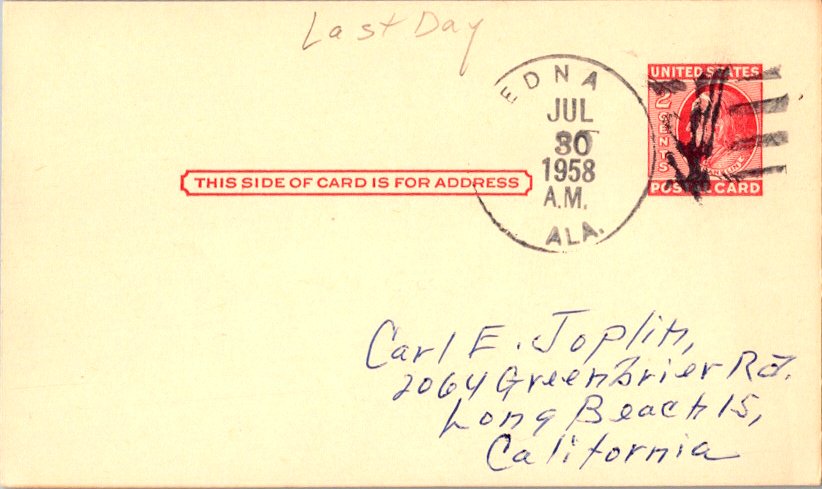 Last Day
EDNA
JUL
30
1958
A.M.
ALA.
UNITED STATES
2 CENTS
POSTAL CARD
THIS SIDE OF CARD IS FOR ADDRESS
Carl E. Joplin,
2064 Greenbrier Rd.
Long Beach 15,
California